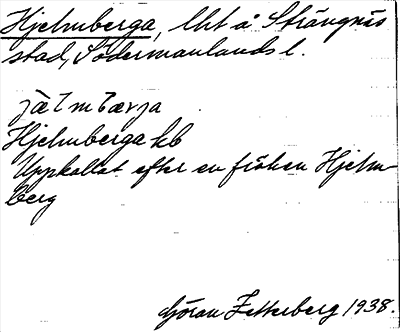 Hjelmberga, lht å Strängnäs
stad, Södermanlands l.
jὲlmbærja
Hjelmberga kb
Uppkallat efter en fröken Hjelm-
berg
Göran Zetterberg 1938.